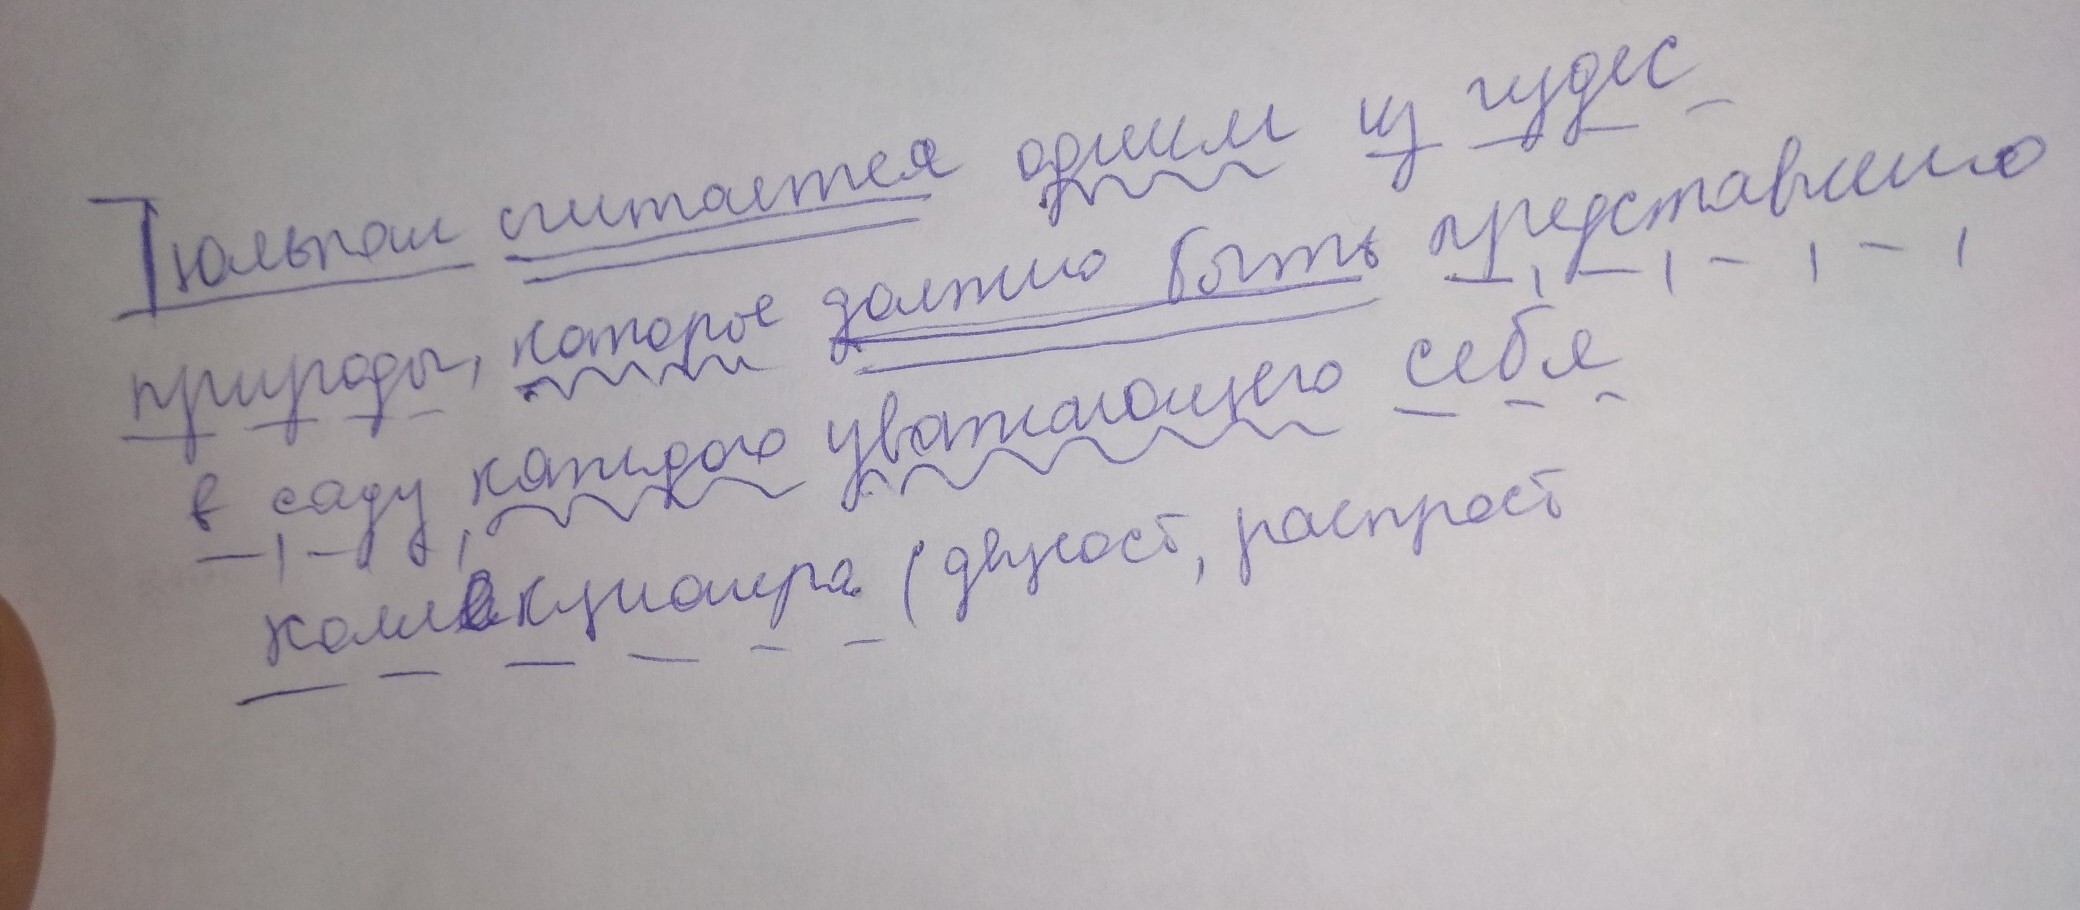 Тюльпан считается одним из чудес
природы, которое должно быть представлено
в саду каждого уважающего себя
коллекционера (двусост, распрост